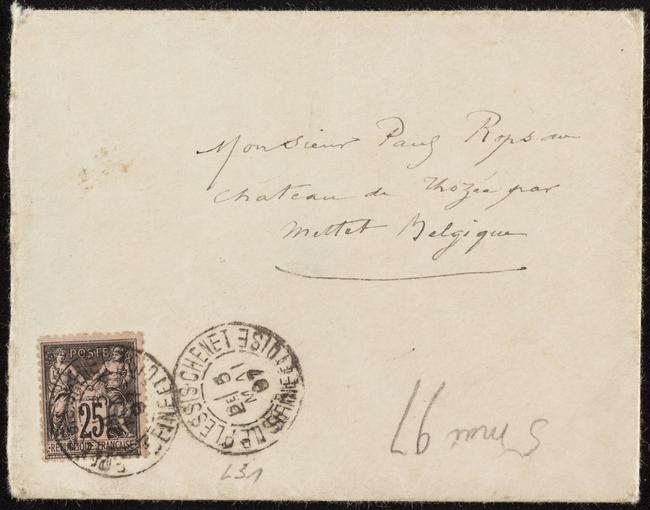 Monsieur Paul Rops au
chateau de Thozée par
Mettet Belgique
POSTES
25
REPUBLIQUE FRANÇAISE
LE PLESSIS-CHENET
SEINE ET OISE
5
MAI
97
5 mai 97
L31